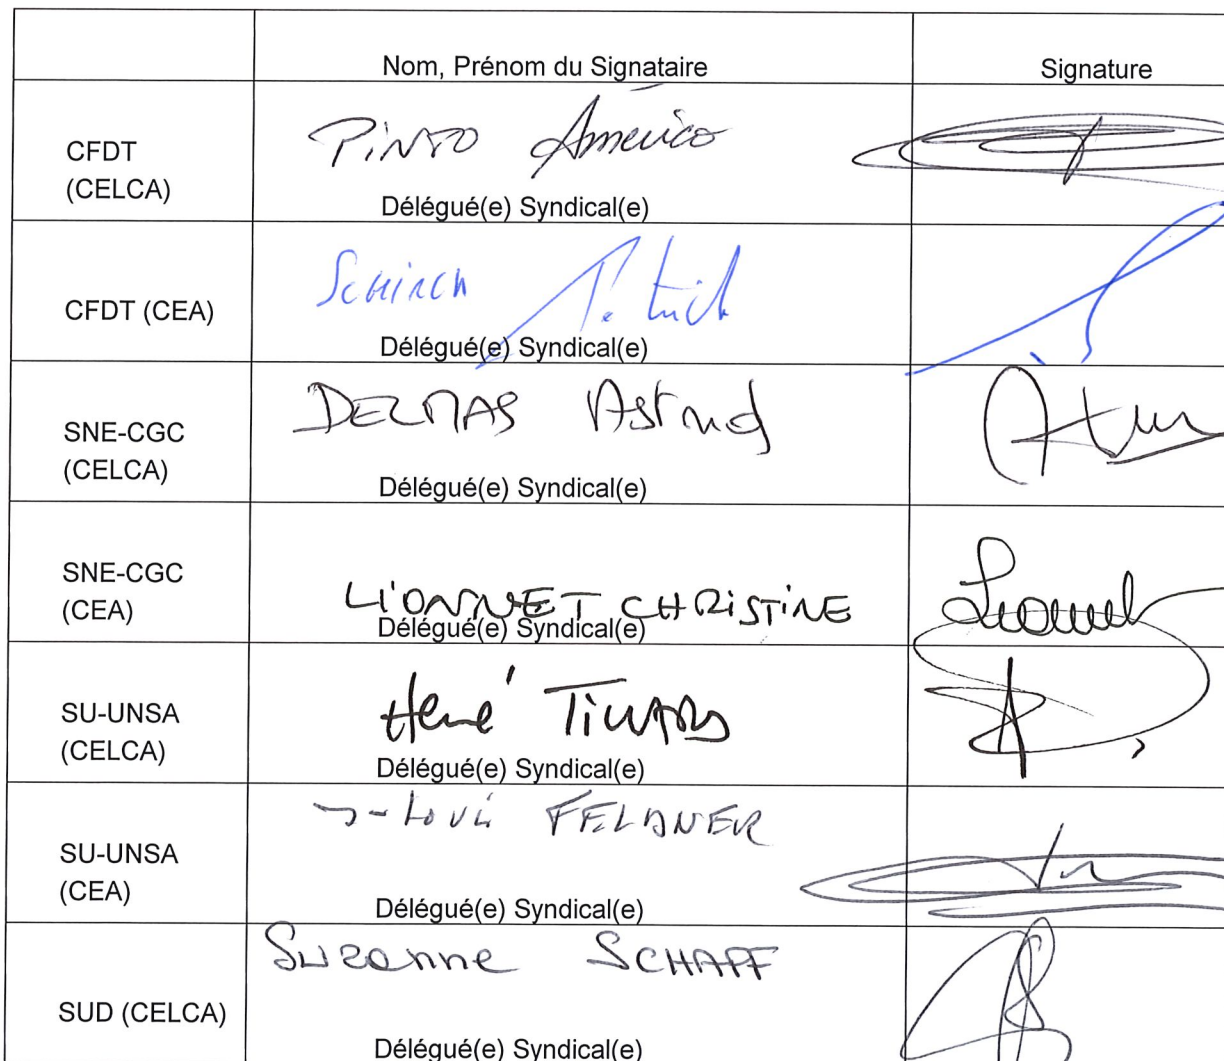 Nom, Prénom du Signataire Signature
CFDT
(CELCA)
PINTO Américo
Délégué(e) Syndical(e)
CFDT (CEA)
SCHIRCH Patrick
Délégué(e) Syndical(e)
SNE-CGC
(CELCA)
DELMAS Astrid
Délégué(e) Syndical(e)
SNE-CGC
(CEA)
LIONNET CHRISTINE
Délégué(e) Syndical(e)
SU-UNSA
(CELCA)
Hervé
Délégué(e) Syndical(e)
SU-UNSA
(CEA)
J-Louis FELDNER
Délégué(e) Syndical(e)
SUD (CELCA)
Suzanne SCHAFF
Délégué(e) Syndical(e)